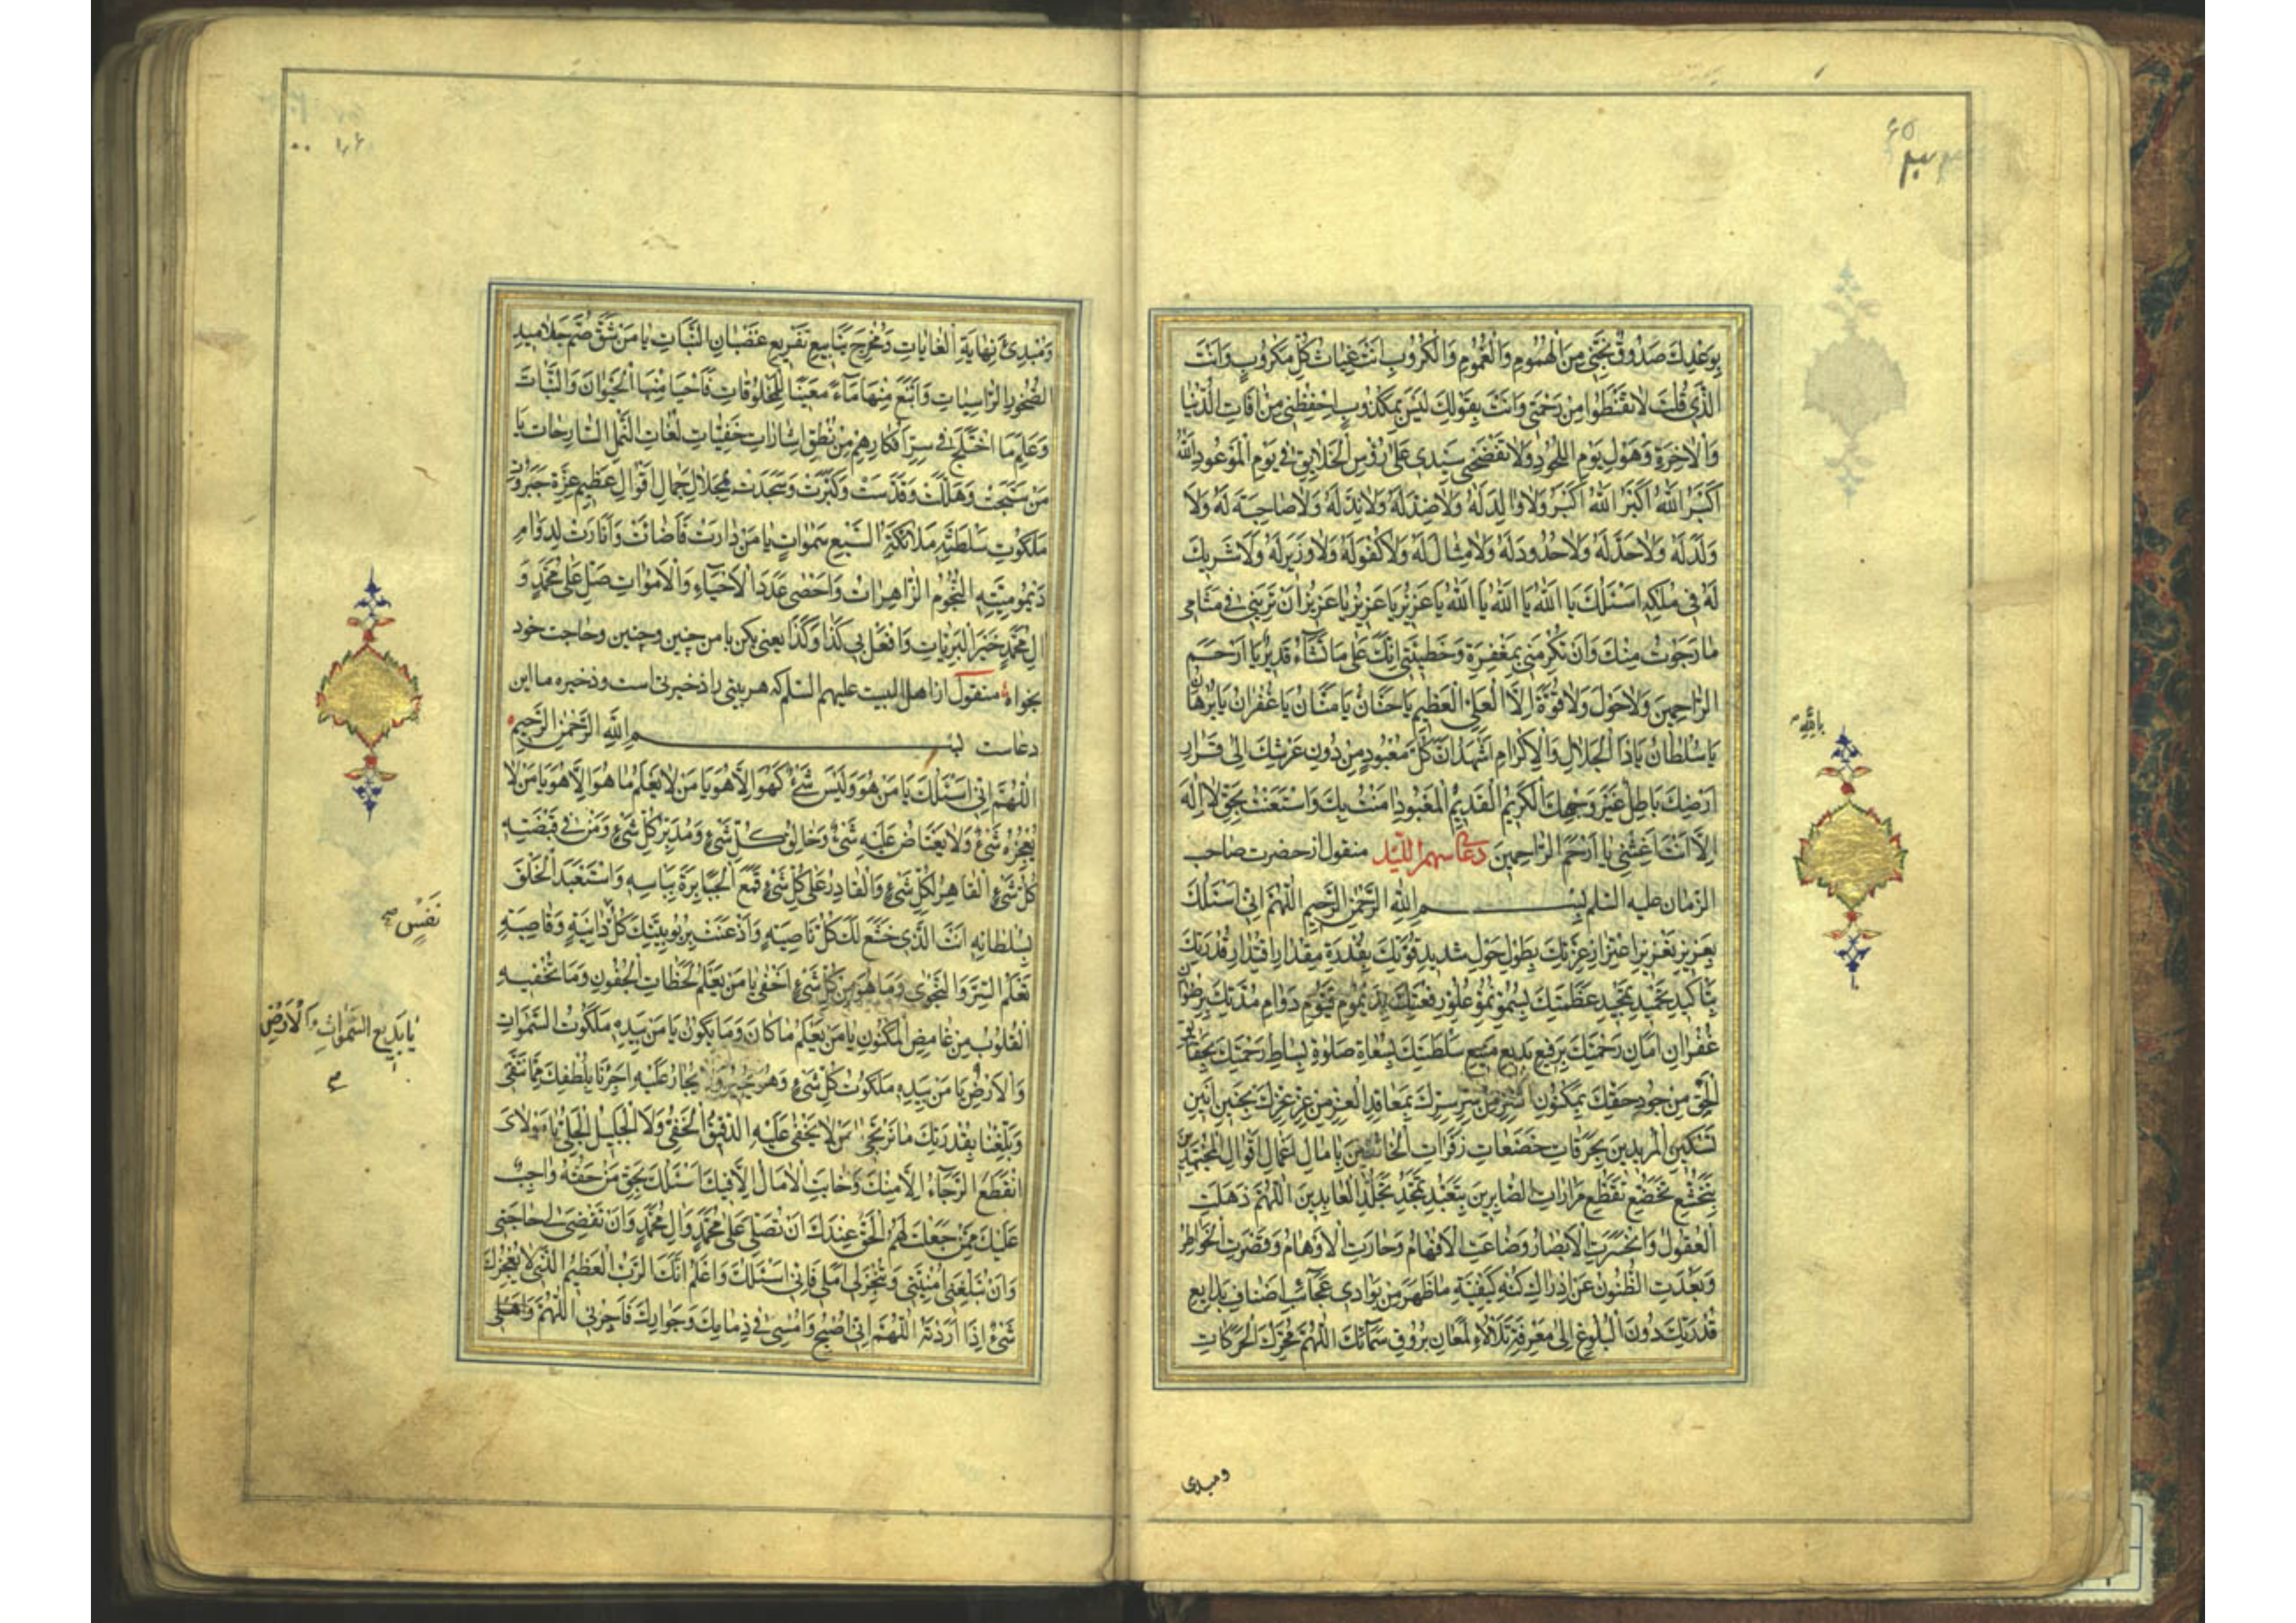 بِوَعْدِكَ صَدُوقٌ نَجِّنِی مِنَ الْهُمُومِ وَالْغُمُومِ وَالْكُرُوبِ اَنْتَ غِیَاثُ كُلِّ مَكْرُوبٍ وَاَنْتَ
الَّذِی قُلْتَ لَا تَقْنَطُوا مِنْ رَحْمَتِی وَاَنْتَ بِقَوْلِكَ لَیْسَ بِمَكْذُوبٍ اِحْفِظْنِی مِنْ اٰفَاتِ الدُّنْیَا
وَالْاٰخِرَةِ وَهَوْلِ یَوْمِ اللُّحُودِ وَلَا تَفْضَحْنِی سَیِّدِی عَلٰی رُؤُسِ الْخَلَایِقِ فِی یَوْمِ الْمَوْعُودِ اللّٰهُ
اَكْبَرُ اللّٰهُ اَكْبَرُ اللّٰهُ اَكْبَرُ وَلَا وَالِدَ لَهُ وَلَا ضِدَّ لَهُ وَلَا نِدَّ لَهُ وَلَا صَاحِبَةَ لَهُ وَلَا
وَلَدَ لَهُ وَلَا حَدَّ لَهُ وَلَا حُدُودَ لَهُ وَلَا مِثَالَ لَهُ وَلَا كُفْوَ لَهُ وَلَا وَزِیرَ لَهُ وَلَا شَرِیكَ
لَهُ فِی مُلْكِهِ اَسْئَلُكَ یَا اَللّٰهُ یَا اَللّٰهُ یَا اَللّٰهُ یَا عَزِیزُ یَا عَزِیزُ یَا عَزِیزُ اَنْ تُرِیَنِی فِی مَنَامِی
مَا رَجَوْتُ مِنْكَ وَاَنْ تُكْرِمَنِی بِمَغْفِرَةِ وَخَطِیئَتِی اِنَّكَ عَلٰی مَا تَشَاءُ قَدِیرٌ یَا اَرْحَمَ
الرَّاحِمِینَ وَلَا حَوْلَ وَلَا قُوَّةَ اِلَّا الْعَلِیِّ الْعَظِیمِ یَا حَنَّانُ یَا مَنَّانُ یَا غُفْرَانُ یَا بُرْهَانُ
یَا سُلْطَانُ یَا ذَا الْجَلَالِ وَالْاِكْرَامِ اَشْهَدُ اَنَّ كُلَّ مَعْبُودٍ مِنْ دُونِ عَرْشِكَ اِلٰی قَرَارِ
یا اللّٰه
اَرْضِكَ بَاطِلٌ غَیْرَ وَجْهِكَ الْكَرِیمِ الْقَدِیمِ الْمَعْبُودِ اٰمَنْتُ بِكَ وَاسْتَعَنْتُ بِحَقِّ لَا اِلٰهَ
اِلَّا اَنْتَ اَغِثْنِی یَا اَرْحَمَ الرَّاحِمِینَ دعای سهم اللیل منقول از حضرت صاحب
الزمان علیه السلم بِسْمِ اللّٰهِ الرَّحْمٰنِ الرَّحِیمِ اَللّٰهُمَّ اِنِّی اَسْئَلُكَ
بِعَزِیزِ تَعْزِیزِ اِعْتِزَازِ عِزَّتِكَ بِطَوْلِ حَوْلِ شَدِیدِ قُوَّتِكَ بِقُدْرَةِ مِقْدَارِ اقْتِدَارِ قُدْرَتِكَ
بِتَاْكِیدِ تَحْمِیدِ تَمْجِیدِ عَظَمَتِكَ بِسُمُوِّ نُمُوِّ عُلُوِّ رِفْعَتِكَ بِدَیْمُومِ قَیُّومِ دَوَامِ مُدَّتِكَ بِرِضْوَانِ
غُفْرَانِ اَمَانِ رَحْمَتِكَ بِرَفِیعِ بَدِیعِ مَنِیعِ سَلْطَنَتِكَ بِسُعَاةِ صَلٰوةِ بِسَاطِ رَحْمَتِكَ بِحَقَایِقِ
الْحَقِّ مِنْ جُودِ حَقِّكَ بِمَكْنُونِ السِّرِّ مِنْ سِرِّ سِرِّكَ بِمَعَاقِدِ الْعِزِّ مِنْ عِزِّ عِزِّكَ بِحَنِینِ اَنِینِ
تَسْكِینِ الْمُرِیدِینَ بِحَرَقَاتِ خَضَعَاتِ زَفَرَاتِ الْخَائِفِینَ بِاٰمَالِ اَعْمَالِ اَقْوَالِ الْمُجْتَهِدِینَ
بِتَخَشُّعِ تَخَضُّعِ تَقَطُّعِ مَرَارَاتِ الصَّابِرِینَ بِتَعَبُّدِ تَمَجُّدِ تَجَلُّدِ الْعَابِدِینَ اَللّٰهُمَّ ذَهَلَتِ
الْعُقُولُ وَانْحَسَرَتِ الْاَبْصَارُ وَضَاعَتِ الْاَفْهَامُ وَحَارَتِ الْاَوْهَامُ وَقَصُرَتِ الْخَوَاطِرُ
وَبَعُدَتِ الظُّنُونُ عَنْ اِدْرَاكِ كُنْهِ كَیْفِیَّةِ مَا ظَهَرَ مِنْ بَوَادِی عَجَائِبِ اَصْنَافِ بَدَایِعِ
قُدْرَتِكَ دُونَ الْبُلُوغِ اِلٰی مَعْرِفَةِ تَلَاْلُؤِ لَمَعَانِ بُرُوقِ سَمَائِكَ اَللّٰهُمَّ مُحَرِّكَ الْحَرَكَاتِ
ومبدی
وَمُبْدِئَ نِهَایَةِ الْغَایَاتِ وَمُخْرِجَ یَنَابِیعِ تَفْرِیعِ قُضْبَانِ النَّبَاتِ یَا مَنْ شَقَّ صُمَّ جَلَامِیدِ
الصُّخُورِ الرَّاسِیَاتِ وَاَنْبَعَ مِنْهَا مَاءً مَعِینًا لِلْمَخْلُوقَاتِ فَاَحْیَا مِنْهَا الْحَیَوَانَ وَالنَّبَاتَ
وَعَلِمَ مَا اخْتَلَجَ فِی سِرِّ اَفْكَارِهِمْ مِنْ نُطْقِ اِشَارَاتِ خَفِیَّاتِ لُغَاتِ النَّمْلِ السَّارِحَاتِ یَا
مَنْ سَبَّحَتْ وَهَلَّلَتْ وَقَدَّسَتْ وَكَبَّرَتْ وَسَجَدَتْ لِجَلَالِ جَمَالِ اَقْوَالِ عَظِیمِ عِزَّةِ جَبَرُوتِ
مَلَكُوتِ سَلْطَنَتِهِ مَلَائِكَةُ السَّبْعِ سَمٰوَاتٍ یَا مَنْ دَارَتْ فَاَضَائَتْ وَاَنَارَتْ لِدَوَامِ
دَیْمُومِیَّتِهِ النُّجُومُ الزَّاهِرَاتُ وَاَحْصٰی عَدَدَ الْاَحْیَاءِ وَالْاَمْوَاتِ صَلِّ عَلٰی مُحَمَّدٍ وَ
اٰلِ مُحَمَّدٍ خَیْرِ الْبَرِیَّاتِ وَافْعَلْ بِی كَذَا وَكَذَا یعنی بكن با من چنین و چنین و حاجت خود
بخواه منقول از اهل البیت علیهم السلم كه هر بیتی را ذخیرتی است و ذخیره ما این
دعاست بِسْمِ اللّٰهِ الرَّحْمٰنِ الرَّحِیمِ
اَللّٰهُمَّ اِنِّی اَسْئَلُكَ یَا مَنْ هُوَ وَلَیْسَ شَیْءٌ كَهُوَ اِلَّا هُوَ یَا مَنْ لَا یَعْلَمُ مَا هُوَ اِلَّا هُوَ یَا مَنْ لَا
یُعْجِزُهُ شَیْءٌ وَلَا یَعْتَاضُ عَلَیْهِ شَیْءٌ وَخَالِقُ كُلِّ شَیْءٍ وَمُدَبِّرُ كُلِّ شَیْءٍ وَمَنْ فِی قَبْضَتِهِ
كُلُّ شَیْءٍ الْقَاهِرُ لِكُلِّ شَیْءٍ وَالْقَادِرُ عَلٰی كُلِّ شَیْءٍ قَمَعَ الْجَبَابِرَةَ بِبَاْسِهِ وَاسْتَعْبَدَ الْخَلْقَ
نَفْسٍ
بِسُلْطَانِهِ اَنْتَ الَّذِی خَشَعَ لَكَ كُلُّ نَاصِیَةٍ وَاَذْعَنَتْ بِرُبُوبِیَّتِكَ كُلُّ دَانِیَةٍ وَقَاصِیَةٍ
تَعْلَمُ السِّرَّ وَالنَّجْوٰی وَمَا هُوَ مِنْ كُلِّ شَیْءٍ اَخْفٰی یَا مَنْ یَعْلَمُ لَحَظَاتِ الْجُفُونِ وَمَا تُخْفِیهِ
الْقُلُوبُ مِنْ غَامِضِ الْمَكْنُونِ یَا مَنْ یَعْلَمُ مَا كَانَ وَمَا یَكُونُ یَا مَنْ بِیَدِهِ مَلَكُوتُ السَّمٰوَاتِ
یَا بَدِیعَ السَّمٰوَاتِ وَالْاَرْضِ
وَالْاَرْضِ یَا مَنْ بِیَدِهِ مَلَكُوتُ كُلِّ شَیْءٍ وَهُوَ یُجِیرُ وَلَا یُجَارُ عَلَیْهِ اَجِرْنَا بِلُطْفِكَ مِمَّا نَتَّقِی
وَبَلِّغْنَا بِقُدْرَتِكَ مَا نَرْتَجِی مَنْ لَا یَخْفٰی عَلَیْهِ الدَّقِیقُ الْخَفِیُّ وَلَا الْجَلِیلُ الْجَلِیُّ یَا مَوْلَایَ
انْقَطَعَ الرَّجَاءُ اِلَّا مِنْكَ وَخَابَتِ الْاٰمَالُ اِلَّا فِیكَ اَسْئَلُكَ بِحَقِّ مَنْ حَقُّهُ وَاجِبٌ
عَلَیْكَ مِمَّنْ جَعَلْتَ لَهُمُ الْحَقَّ عِنْدَكَ اَنْ تُصَلِّیَ عَلٰی مُحَمَّدٍ وَاٰلِ مُحَمَّدٍ وَاَنْ تَقْضِیَ لِی حَاجَتِی
وَاَنْ تُبَلِّغَنِی اُمْنِیَّتِی وَتُنْجِزَ لِی اَمَلِی فَاِنِّی اَسْئَلُكَ وَاَعْلَمُ اَنَّكَ الرَّبُّ الْعَظِیمُ الَّذِی لَا یُعْجِزُكَ
شَیْءٌ اِذَا اَرَدْتَهُ اَللّٰهُمَّ اِنِّی اُصْبِحُ وَاُمْسِی فِی ذِمَامِكَ وَجِوَارِكَ فَاَجِرْنِی اَللّٰهُمَّ وَاَهْلِی